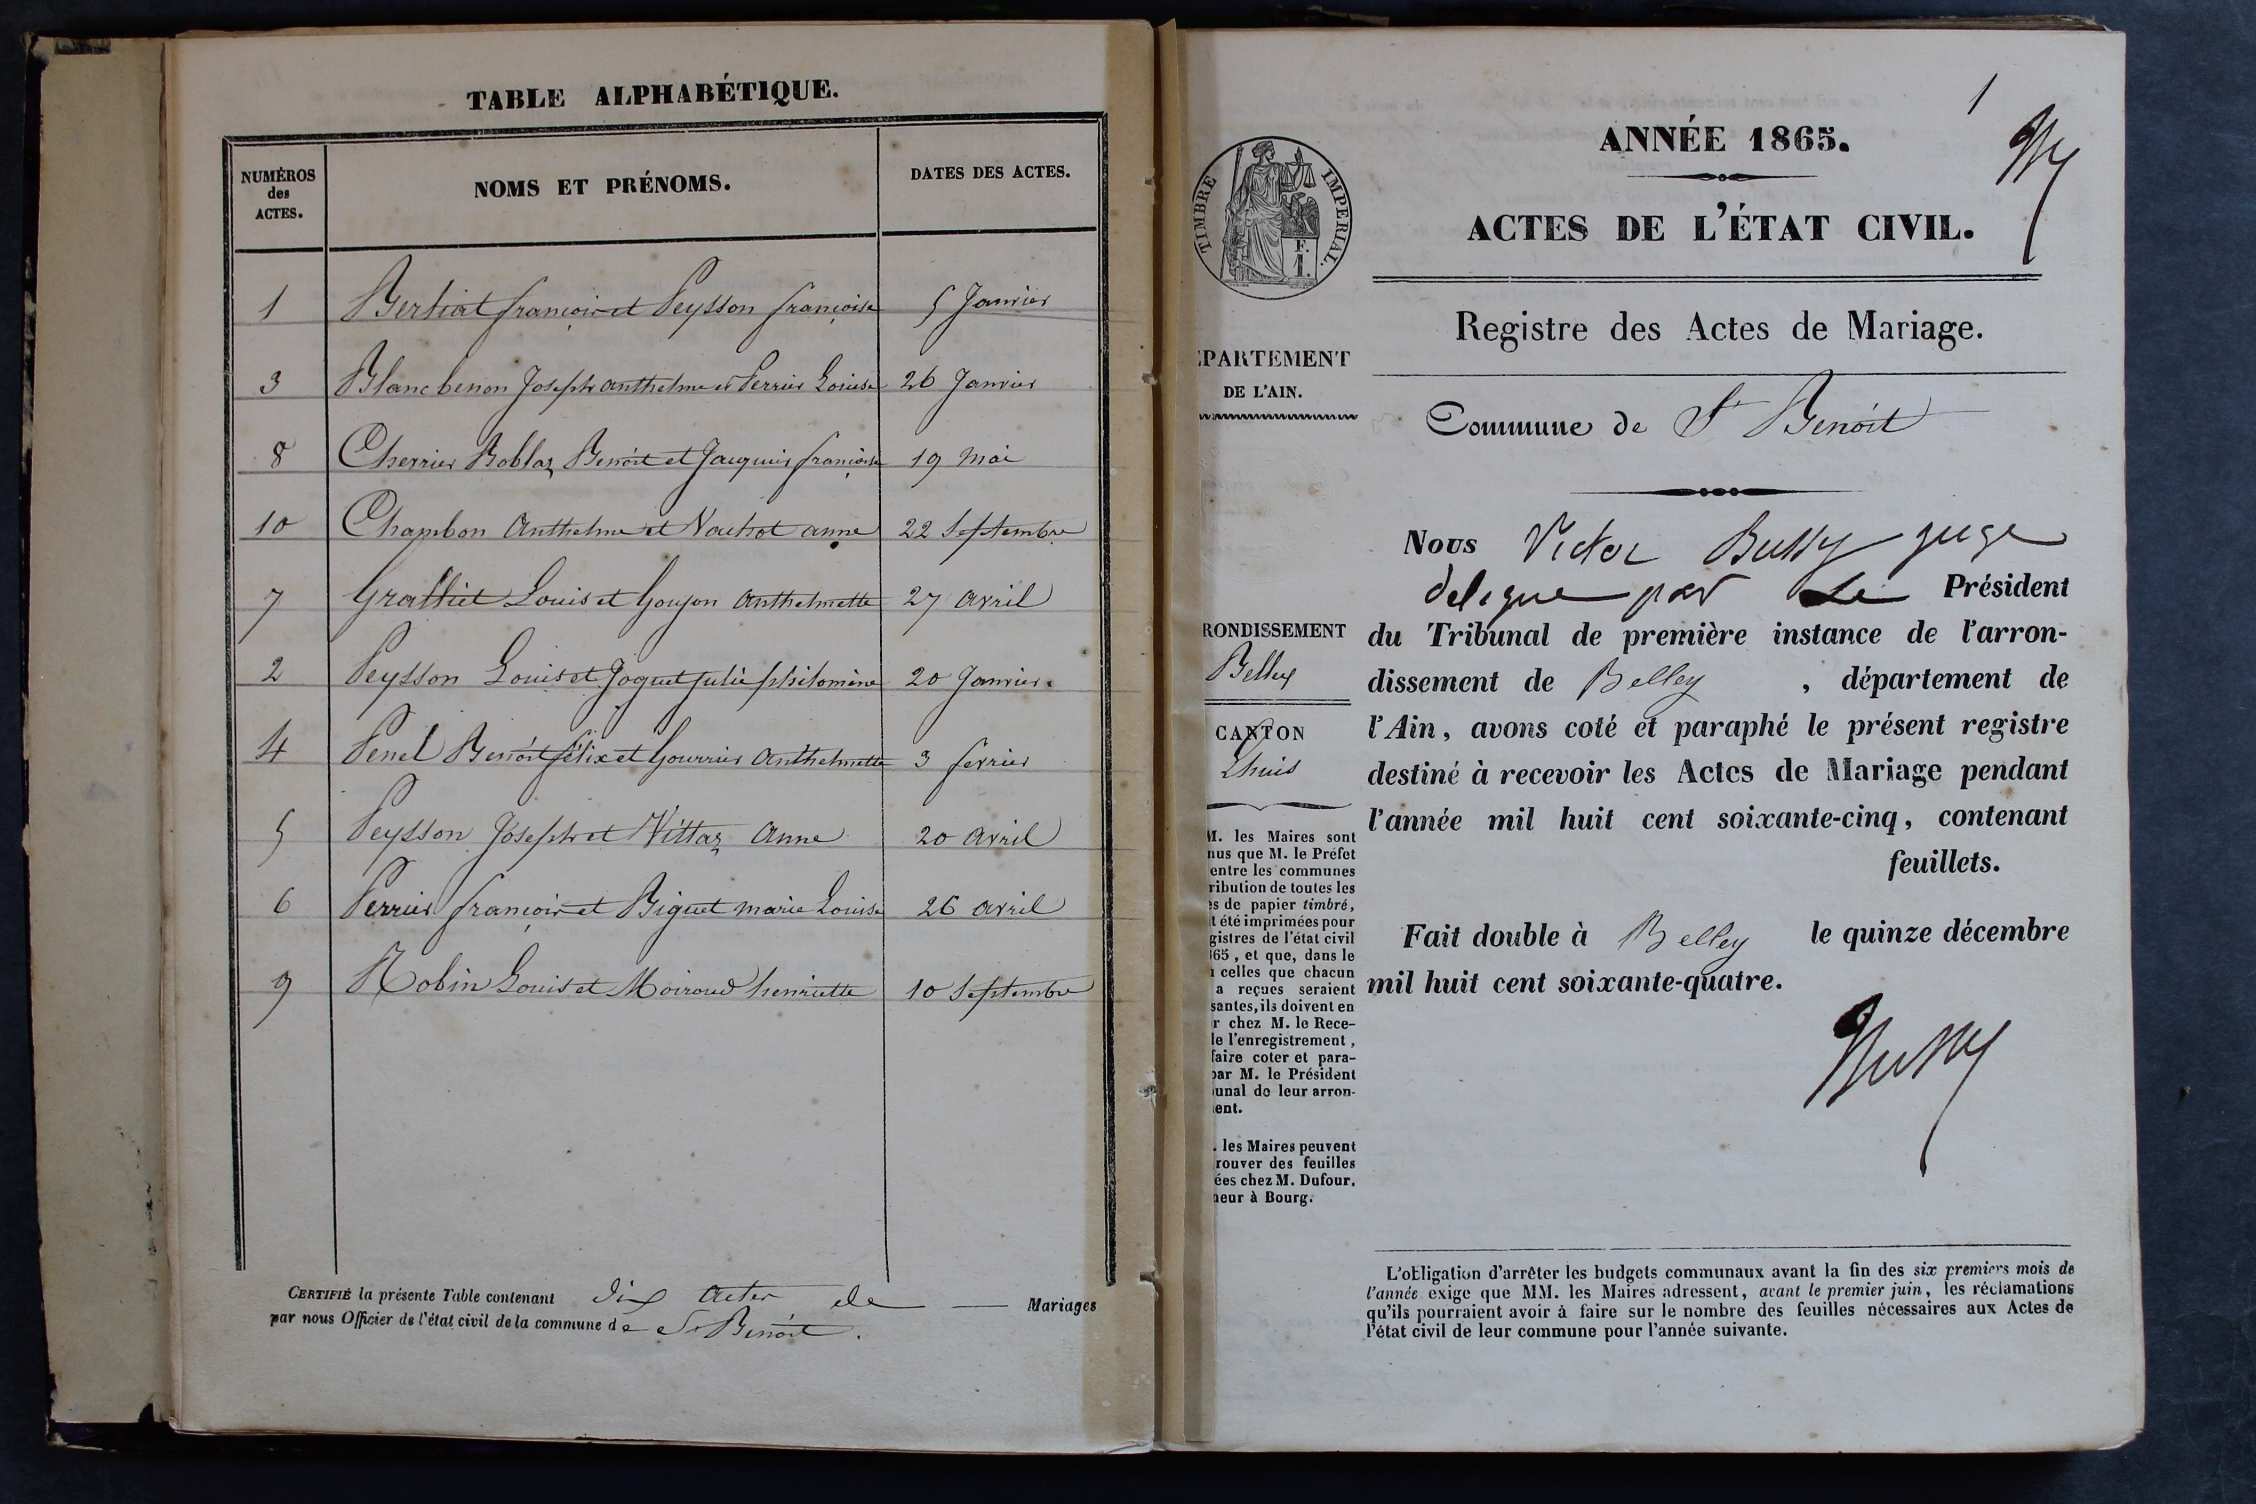 TABLE ALPHABÉTIQUE.
NUMÉROS
des
ACTES.
NOMS ET PRÉNOMS.
DATES DES ACTES.
1 Bertiat françois et Peysson françoise 5 Janvier
3 Blanc benon Joseph anthelme et Perrier Louise 26 Janvier
8 Cherrier Boblaz Benoit et Jacquin françoise 19 mai
10 Chambon Anthelme et Vachot anne 22 Septembre
7 Gralliet Louis et Goujon Anthelmette 27 avril
2 Peysson Louis et Joguet julie philomène 20 Janvier
4 Penel Benoit félix et Gourrier Anthelmette 3 fevrier
5 Peysson Joseph et Vittaz Anne 20 avril
6 Perrier françois et Biguet marie Louise 26 avril
9 Robin Louis et Moiroud henriette 10 Septembre
CERTIFIÉ la présente Table contenant dix actes de Mariages
par nous Officier de l'état civil de la commune de St Benoit.
1
ANNÉE 1865.
ACTES DE L'ÉTAT CIVIL.
TIMBRE IMPERIAL.
F.
1.
Registre des Actes de Mariage.
PARTEMENT
DE L'AIN.
Commune de St Benoit
Nous Victor Bussy juge
délégué par Le Président
du Tribunal de première instance de l'arron-
dissement de Belley, département de
l'Ain, avons coté et paraphé le présent registre
destiné à recevoir les Actes de Mariage pendant
l'année mil huit cent soixante-cinq, contenant
feuillets.
Fait double à Belley le quinze décembre
mil huit cent soixante-quatre.
Bussy
RONDISSEMENT
Belley
CANTON
Lhuis
M. les Maires sont
nus que M. le Préfet
entre les communes
ribution de toutes les
es de papier timbré,
t été imprimées pour
gistres de l'état civil
65, et que, dans le
celles que chacun
a reçues seraient
santes, ils doivent en
r chez M. le Rece-
le l'enregistrement,
faire coter et para-
par M. le Président
unal de leur arron-
ent.
. les Maires peuvent
rouver des feuilles
ées chez M. Dufour,
neur à Bourg.
L'obligation d'arrêter les budgets communaux avant la fin des six premiers mois de
l'année exige que MM. les Maires adressent, avant le premier juin, les réclamations
qu'ils pourraient avoir à faire sur le nombre des feuilles nécessaires aux Actes de
l'état civil de leur commune pour l'année suivante.